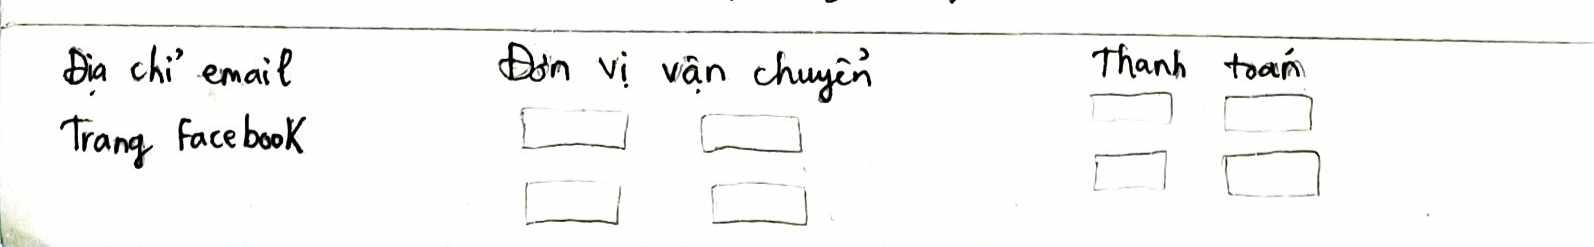 Địa chỉ email
Trang Facebook
Đơn vị vận chuyển
Thanh toán